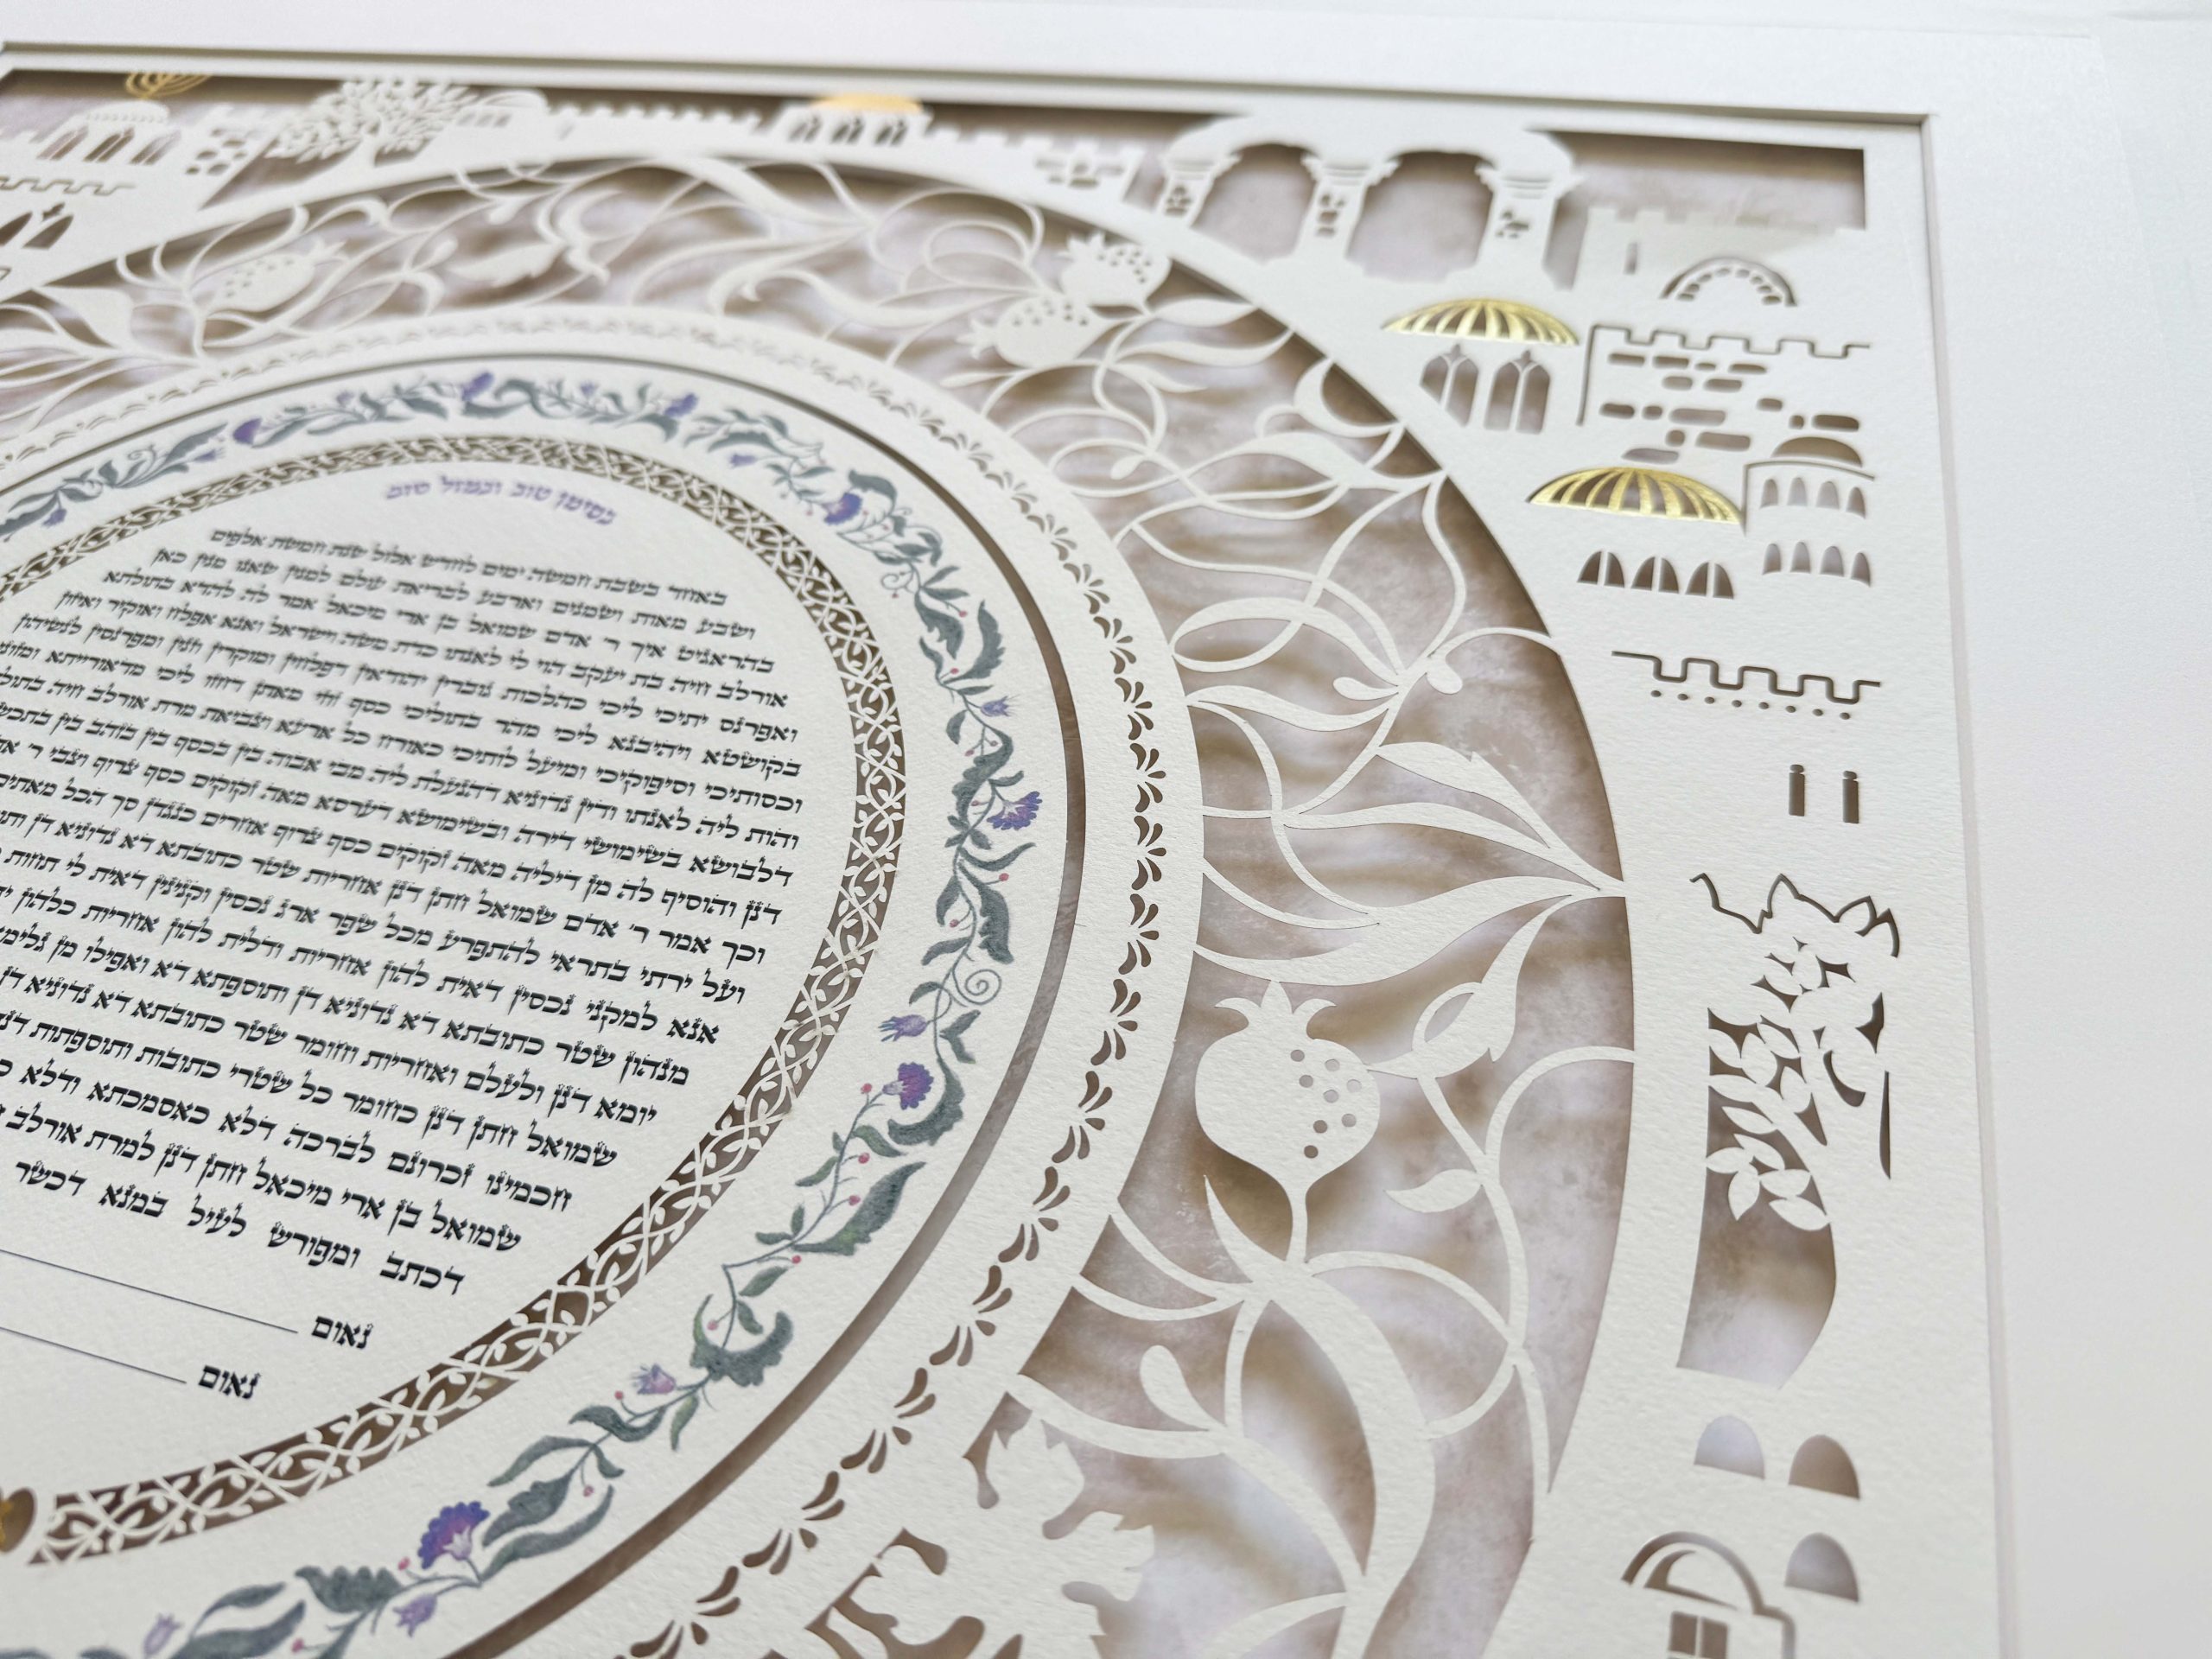 בסימן טוב ובמזל טוב
באחד בשבת חמשה ימים לחודש אלול שנת חמשת אלפים
ושבע מאות ושמנים וארבע לבריאת עולם למנין שאנו מנין כאן
איך ר׳ אדם שמואל בן ארי מיכאל אמר לה להדא בתולתא
אורלב חיה בת יעקב הוי לי לאנתו כדת משה וישראל ואנא אפלח ואוקיר ואיזון
ואפרנס יתיכי ליכי כהלכות גוברין יהודאין דפלחין ומוקרין וזנין ומפרנסין לנשיהון
בקושטא ויהיבנא ליכי מהר בתוליכי כסף זוזי מאתן דחזו ליכי מדאורייתא
וכסותיכי וסיפוקיכי ומיעל לותיכי כאורח כל ארעא וצביאת מרת אורלב חיה
והות ליה לאנתו ודין נדוניא דהנעלת ליה מבי אבוה בין בכסף בין בזהב בין
דלבושא בשימושי דירה ובשימושא דערסא מאה זקוקים כסף צרוף וצבי ר׳
דנן והוסיף לה מן דיליה מאה זקוקים כסף צרוף אחרים כנגדן סך הכל
וכך אמר ר׳ אדם שמואל חתן דנן אחריות שטר כתובתא דא נדוניא דן
ועל ירתי בתראי להתפרע מכל שפר ארג נכסין וקנינין דאית לי תחות
אנא למקני נכסין דאית להון אחריות ודלית להון אחריות כלהון
מנהון שטר כתובתא דא נדוניא דן ותוספתא דא ואפילו מן
יומא דנן ולעלם ואחריות וחומר שטר כתובתא דא נדוניא
שמואל חתן דנן כחומר כל שטרי כתובות ותוספתות
חכמינו זכרונם לברכה דלא כאסמכתא ודלא
שמואל בן ארי מיכאל חתן דנן למרת אורלב
דכתב ומפורש לעיל במנא דכשר
נאום
נאום